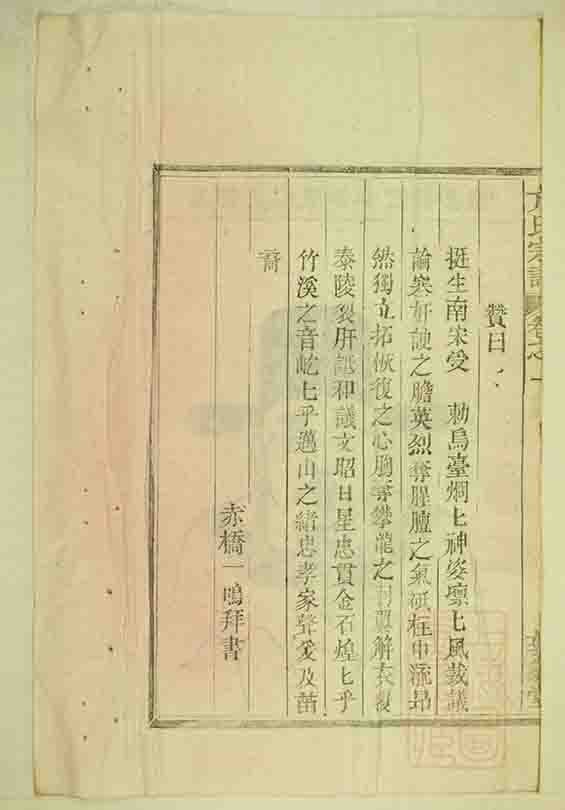 氏宗譜 卷之一
贊曰
挺生南宋受 勅烏臺烱匕神姿凜匕風裁議
論寒奸諛之膽英烈奪腥膻之氣砥柱中流昂
然獨立拓恢復之心胸攀龍之翼解衣
泰陵裂肝詆和議文昭日星忠貫金石煌匕乎
竹溪之音屹匕乎邁山之緒忠孝家聲爰及苗
裔
赤橋一鳴拜書